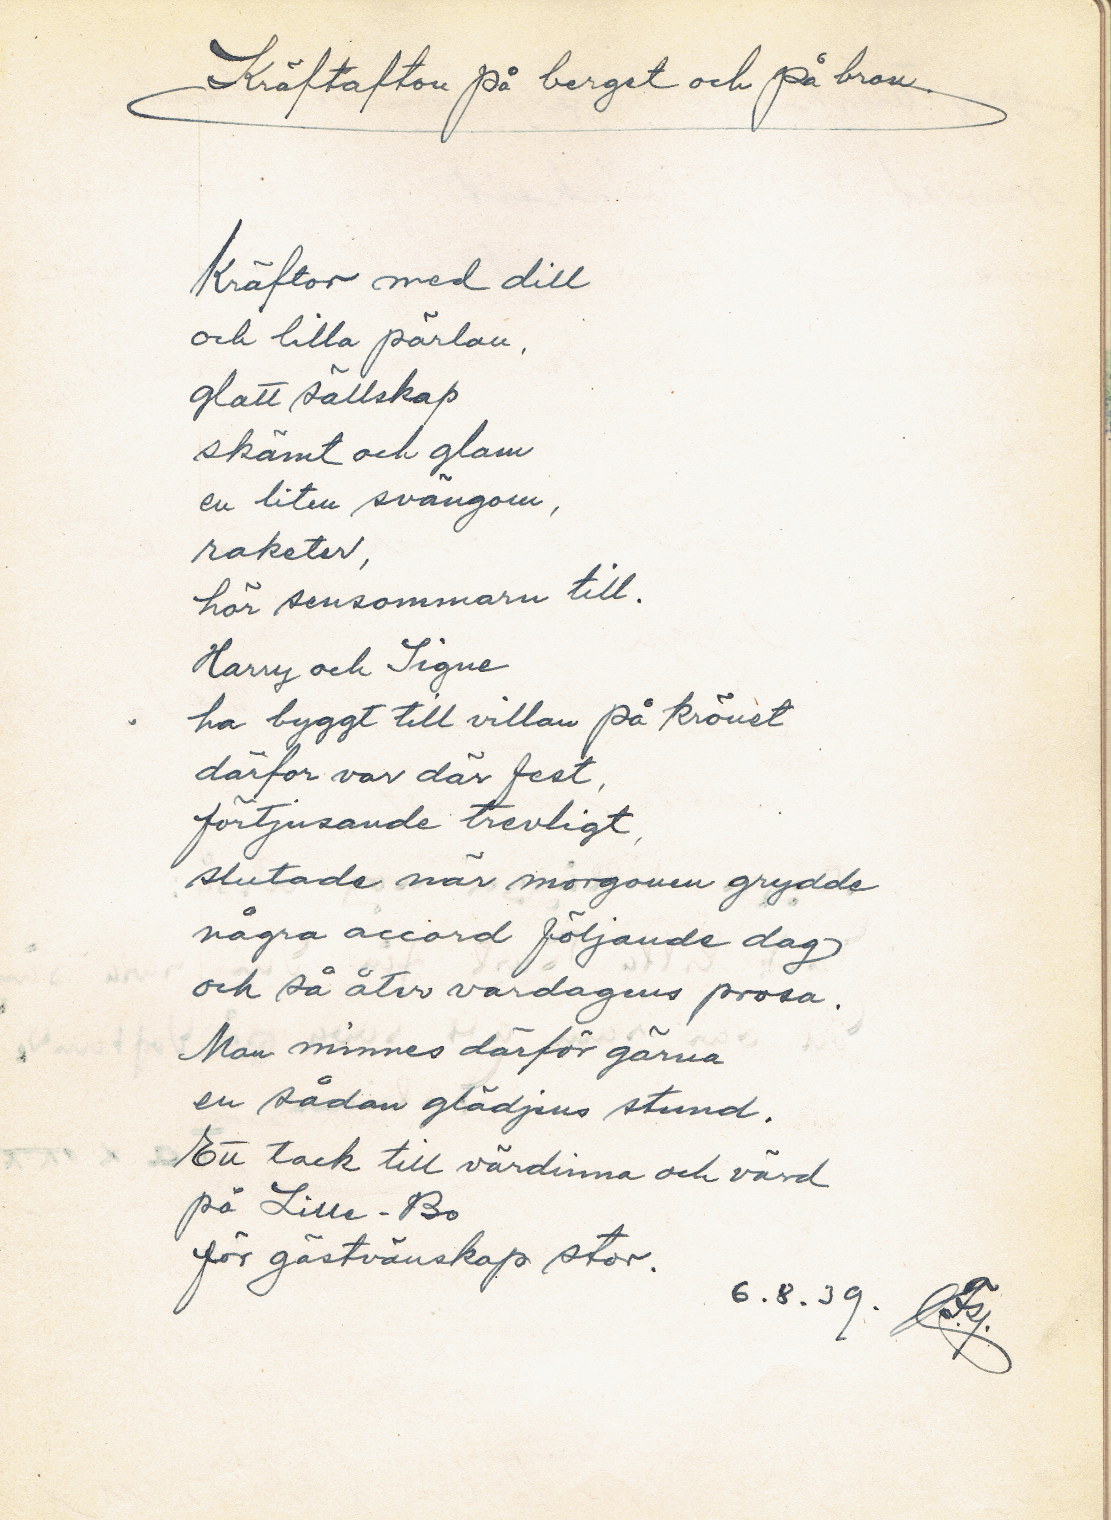 Kräftafton på berget och på bron.
Kräftor med dill
och lilla pärlan,
glatt sällskap
skämt och glam
en liten svängom,
raketer,
hör sensommarn till.
Harry och Signe
ha byggt till villan på krönet
därför var där fest,
förtjusande trevligt,
slutade när morgonen grydde
några accord följande dag
och så åter vardagens prosa.
Man minnes därför gärna
en sådan glädjens stund.
Ett tack till värdinna och värd
på Lille-Bo
för gästvänskap stor.
6.8.39.